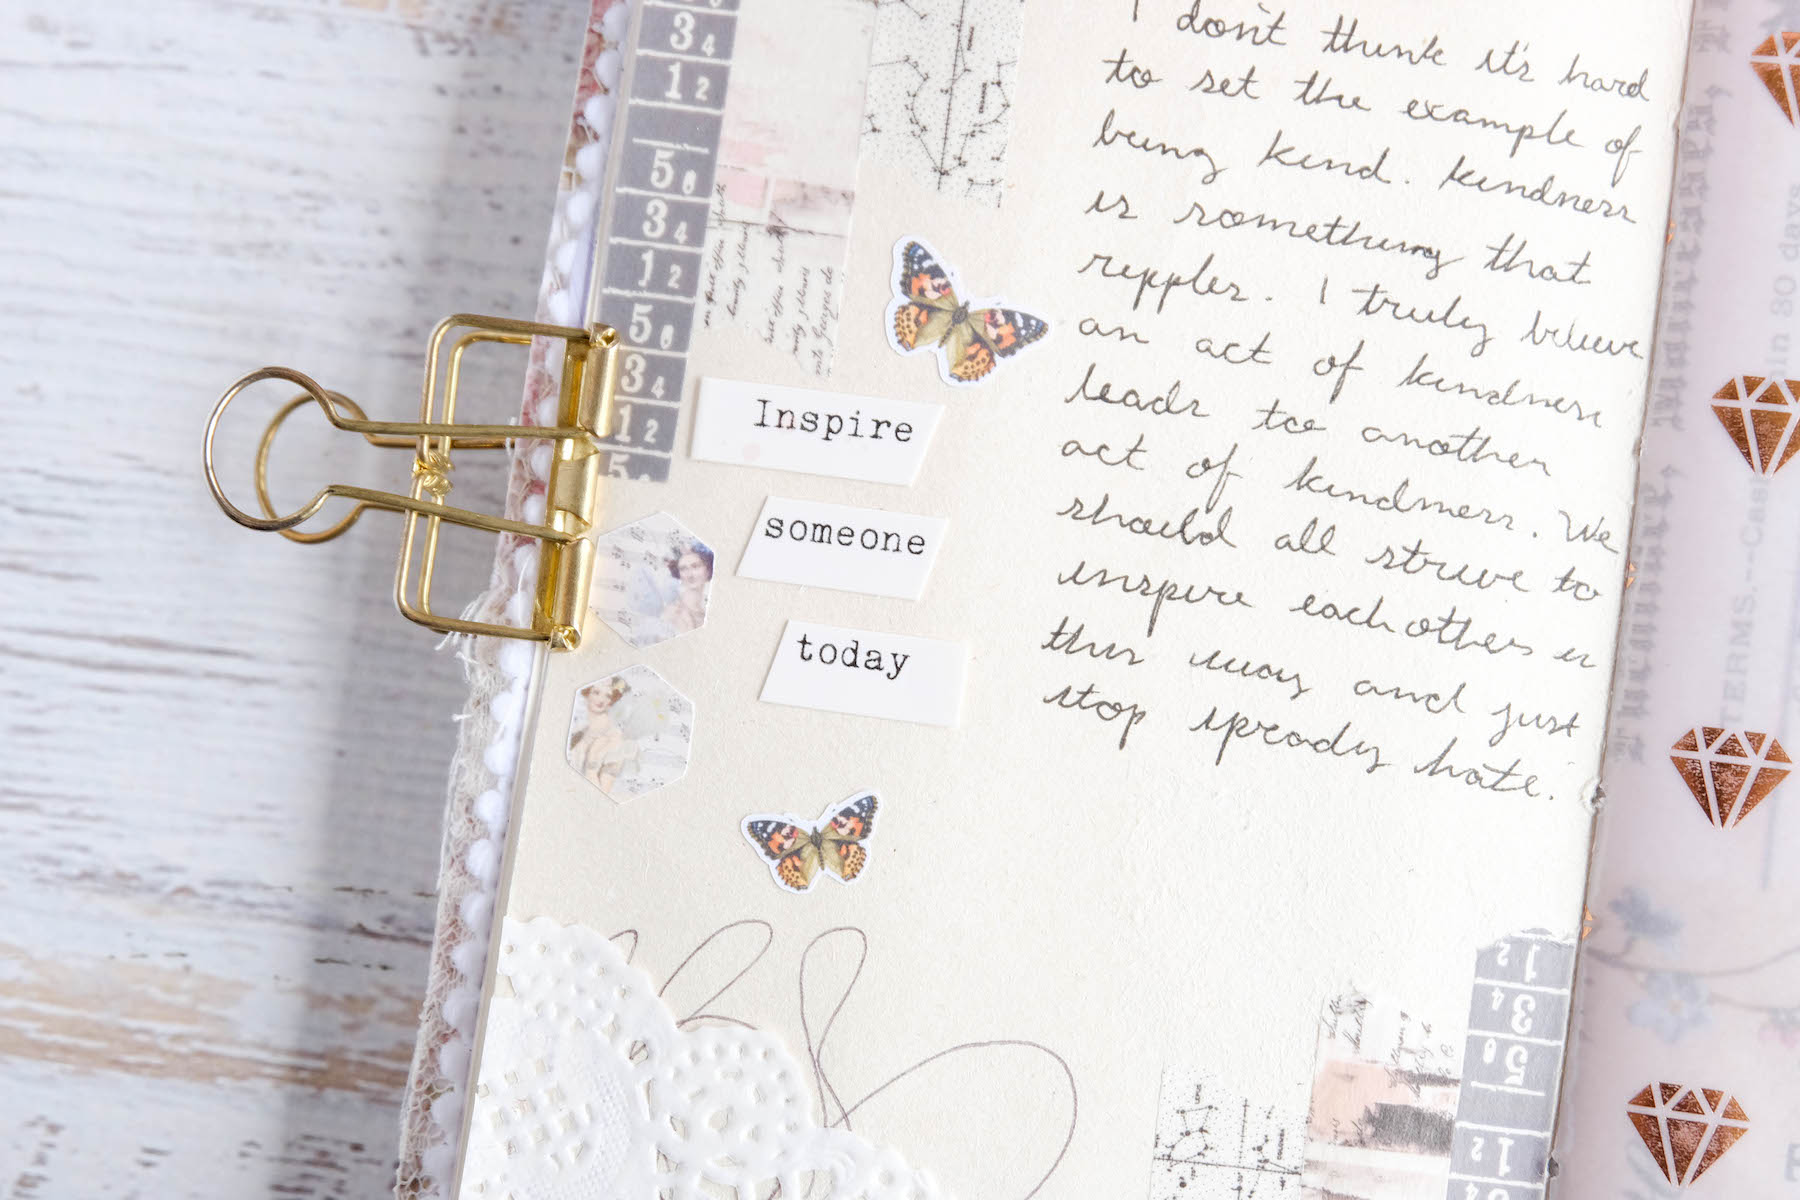 I don't think it's hard
to set the example of
being kind. kindness
is something that
ripples. I truly believe
an act of kindness
leads to another
act of kindness. We
should all strive to
inspire each others in
this way and just
stop spready hate.
Inspire
someone
today
3 4
1 2
5 6
3 4
1 2
5 6
3 4
1 2
5
1 2
3 4
5 6
1 2
TERMS.--Cas
in 30 days